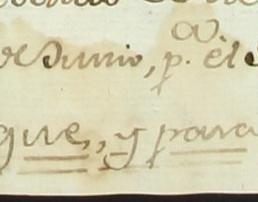 de Junio, p.ª el
que, y para